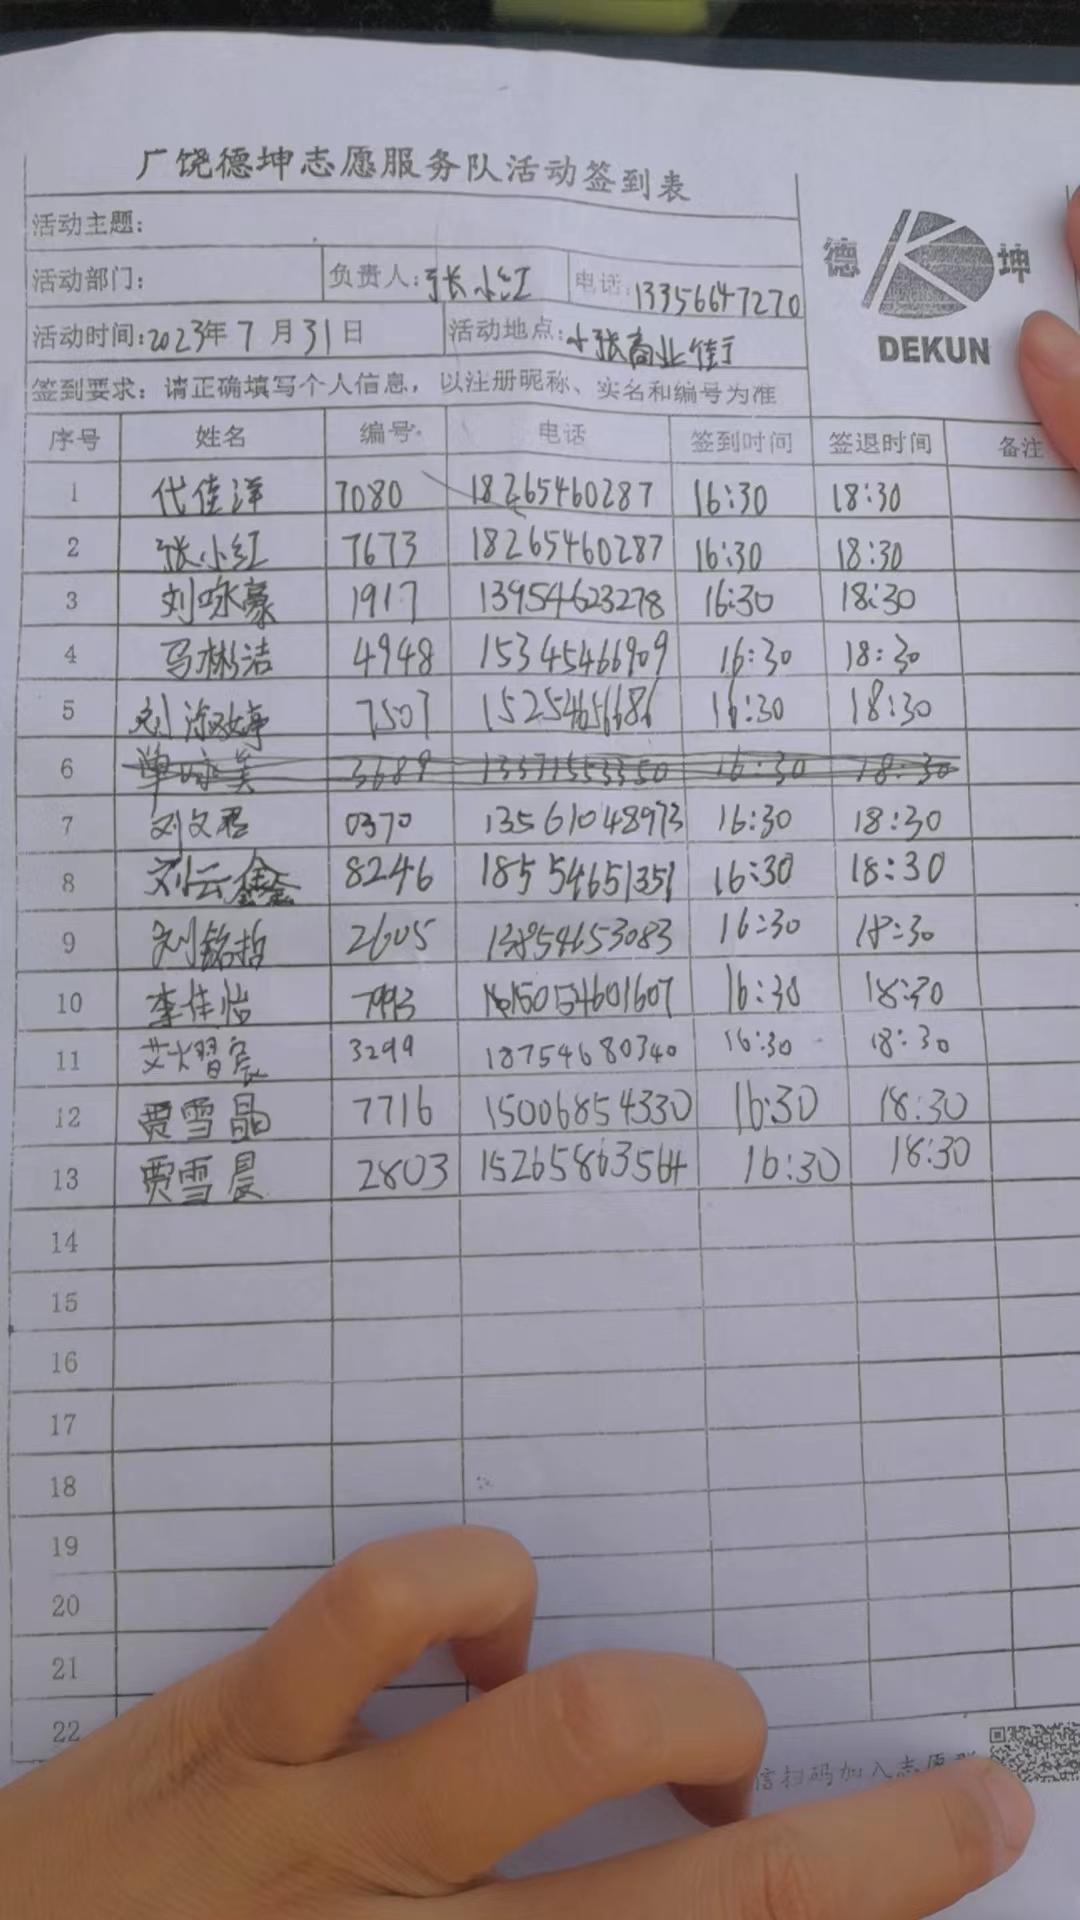 广饶德坤志愿服务队活动签到表
活动主题：
德 坤
DEKUN
活动部门： 负责人：张小红 电话：13356647270
活动时间：2023年7月31日 活动地点：小张商业街
签到要求：请正确填写个人信息，以注册昵称、实名和编号为准
序号 姓名 编号 电话 签到时间 签退时间 备注
1 代佳洋 7080 18265460287 16:30 18:30
2 张小红 7673 18265460287 16:30 18:30
3 刘咏豪 1917 13954623278 16:30 18:30
4 马彬洁 4948 15345466909 16:30 18:30
5 刘 7507 15254656686 16:30 18:30
6 单咏美 3689 13371553350 16:30 18:30
7 刘文君 0370 13561048973 16:30 18:30
8 刘云鑫 8246 18554651351 16:30 18:30
9 刘铭哲 2605 13854653083 16:30 18:30
10 李佳怡 7993 16:30 18:30
11 艾熠宸 3299 18754680340 16:30 18:30
12 贾雪晶 7716 15006854330 16:30 18:30
13 贾雪晨 2803 15265863564 16:30 18:30
14
15
16
17
18
19
20
21
22
信扫码加入志愿群